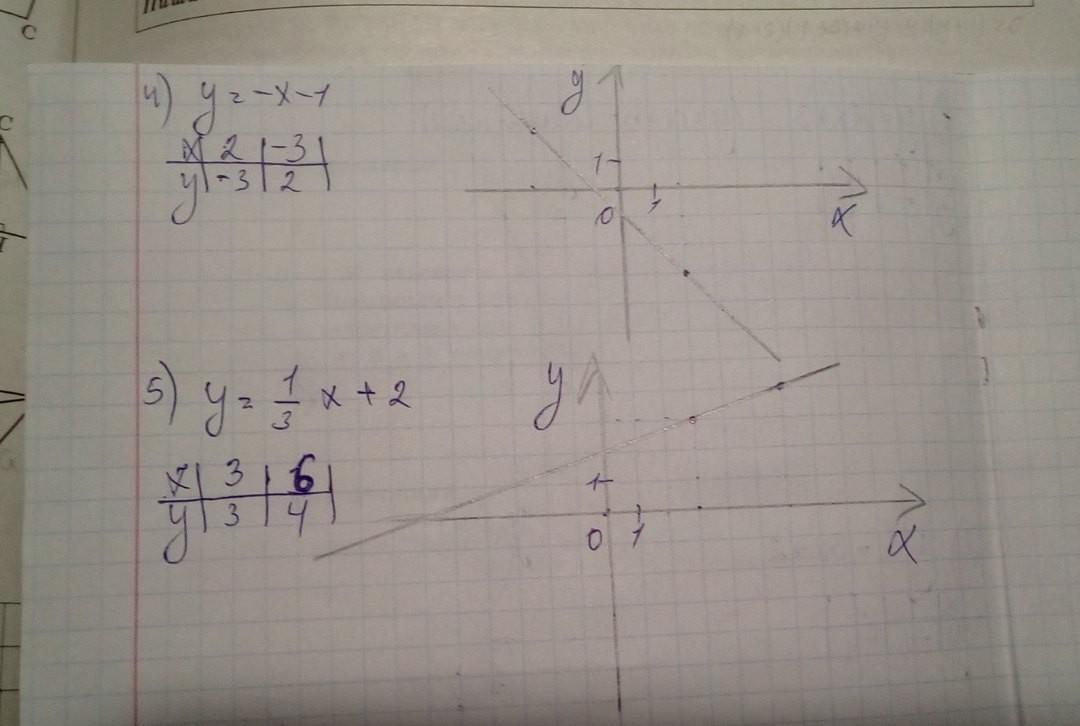 4) y = -x-1
x | 2 | -3 |
y | -3 | 2 |
y
1
0 1
x
5) y = 1/3 x + 2
x | 3 | 6 |
y | 3 | 4 |
y
1
0 1
x